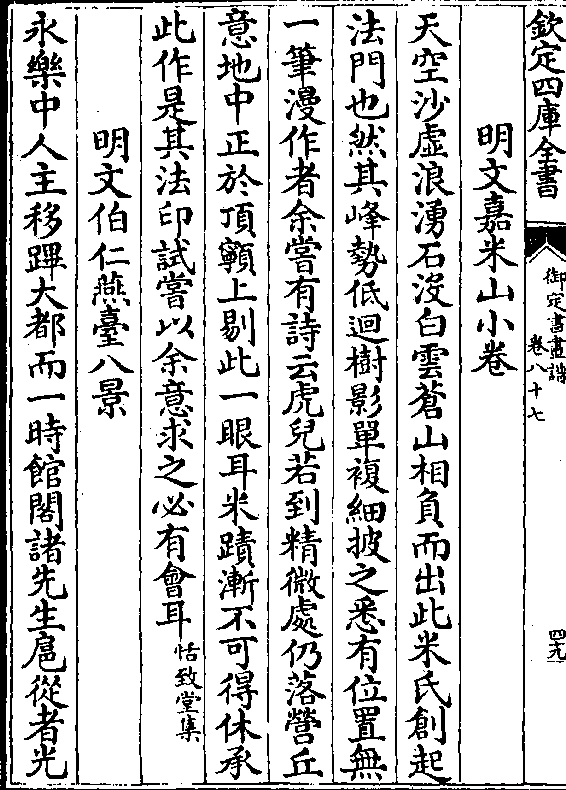 欽定四庫全書
御定書畫譜
卷八十七
四十九
明文嘉米山小卷
天空沙虛浪湧石沒白雲蒼山相負而出此米氏創起
法門也然其峰勢低迴樹影單複細披之悉有位置無
一筆漫作者余嘗有詩云虎兒若到精微處仍落營丘
意地中正於頂顊上剔此一眼耳米蹟漸不可得休承
此作是其法印試嘗以余意求之必有會耳恬致堂集
明文伯仁燕臺八景
永樂中人主移蹕大都而一時館閣諸先生扈從者光